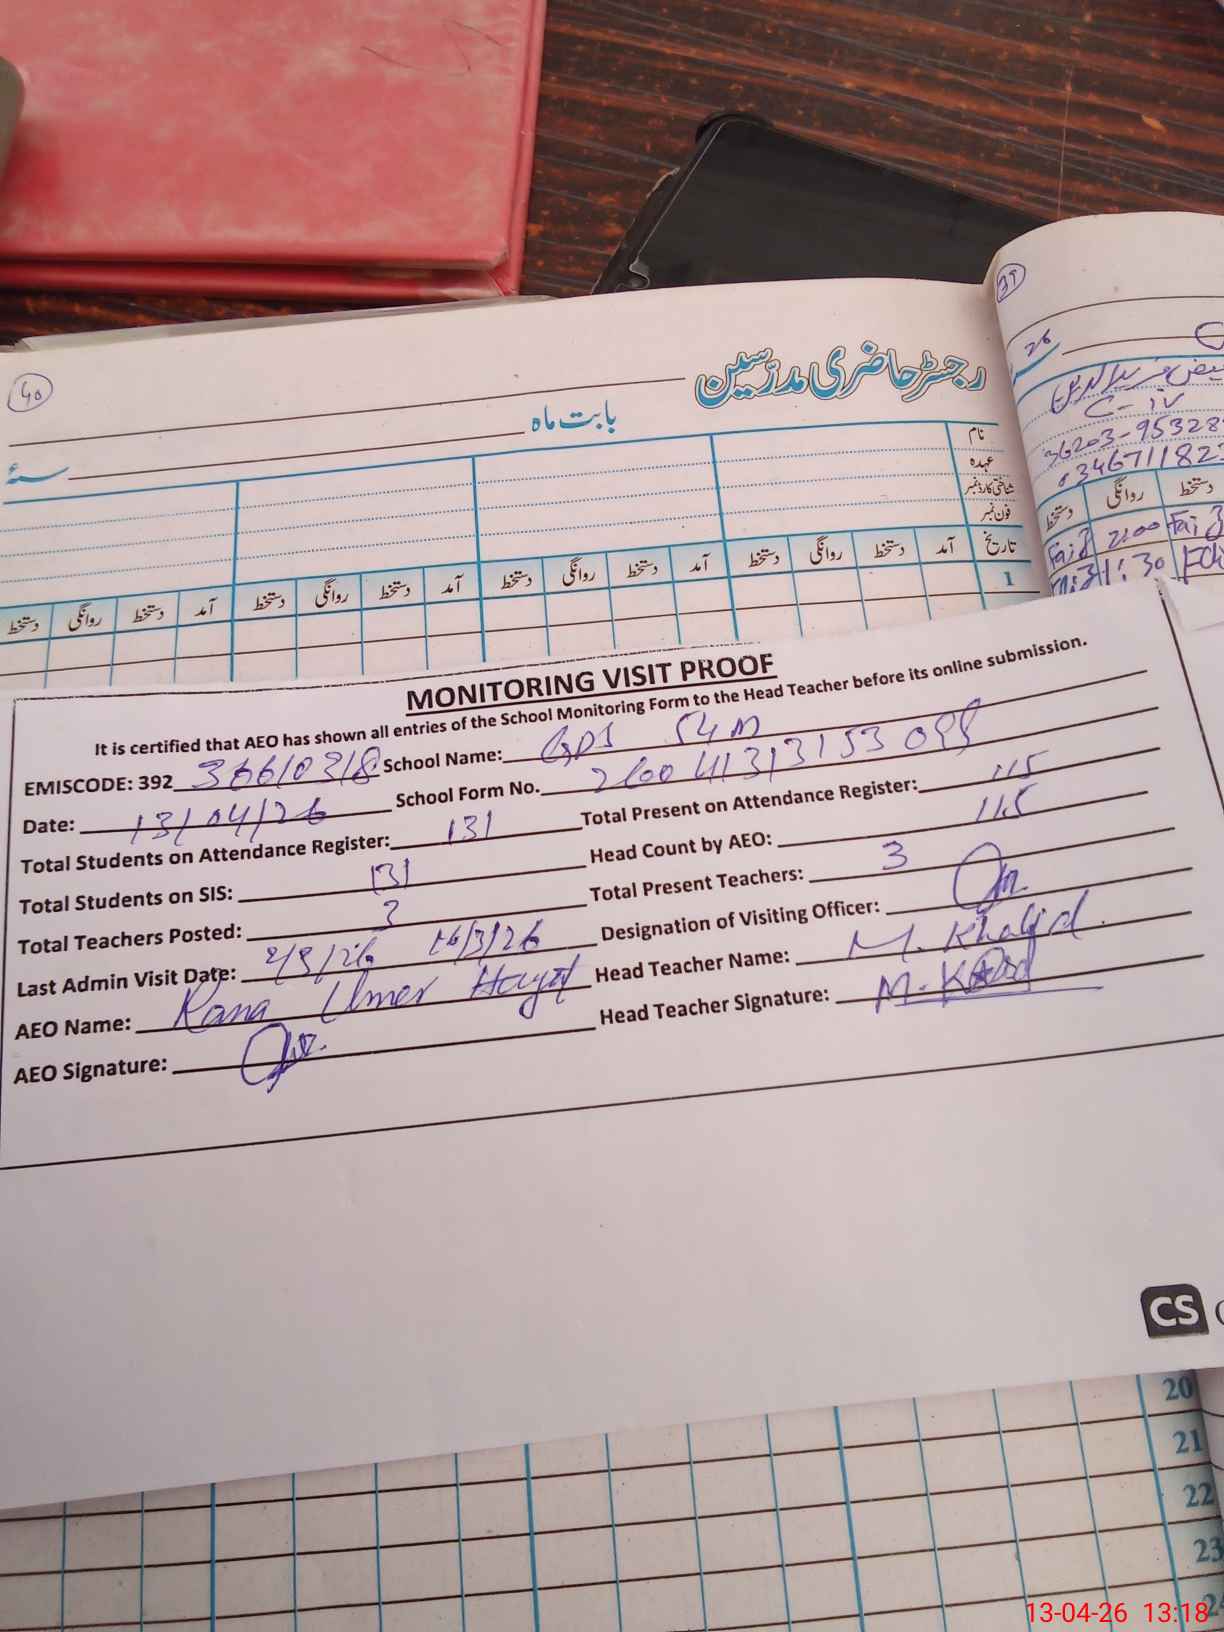 40
رجسٹر حاضری مدرسین
بابت ماہ
سنہ
نام
عہدہ
شناختی کارڈ نمبر
فون نمبر
تاریخ آمد دستخط روانگی دستخط آمد دستخط روانگی دستخط آمد دستخط روانگی دستخط آمد دستخط روانگی دستخط
1
26
C-iv
36203-95328
034671182
دستخط روانگی دستخط
Faiz 2:00 Faiz
1:30
MONITORING VISIT PROOF
It is certified that AEO has shown all entries of the School Monitoring Form to the Head Teacher before its online submission.
EMISCODE: 392 36610318 School Name: GPS 54 M
Date: 13/04/26 School Form No. 260041313153099
Total Students on Attendance Register: 131 Total Present on Attendance Register: 115
Total Students on SIS: 131 Head Count by AEO: 115
Total Teachers Posted: 3 Total Present Teachers: 3
Last Admin Visit Date: 2/3/26 16/3/26 Designation of Visiting Officer:
AEO Name: Rana Umer Hayat Head Teacher Name: M. Khalid
AEO Signature: Head Teacher Signature: M. Khalid
CS
20
21
22
23
24
13-04-26 13:18